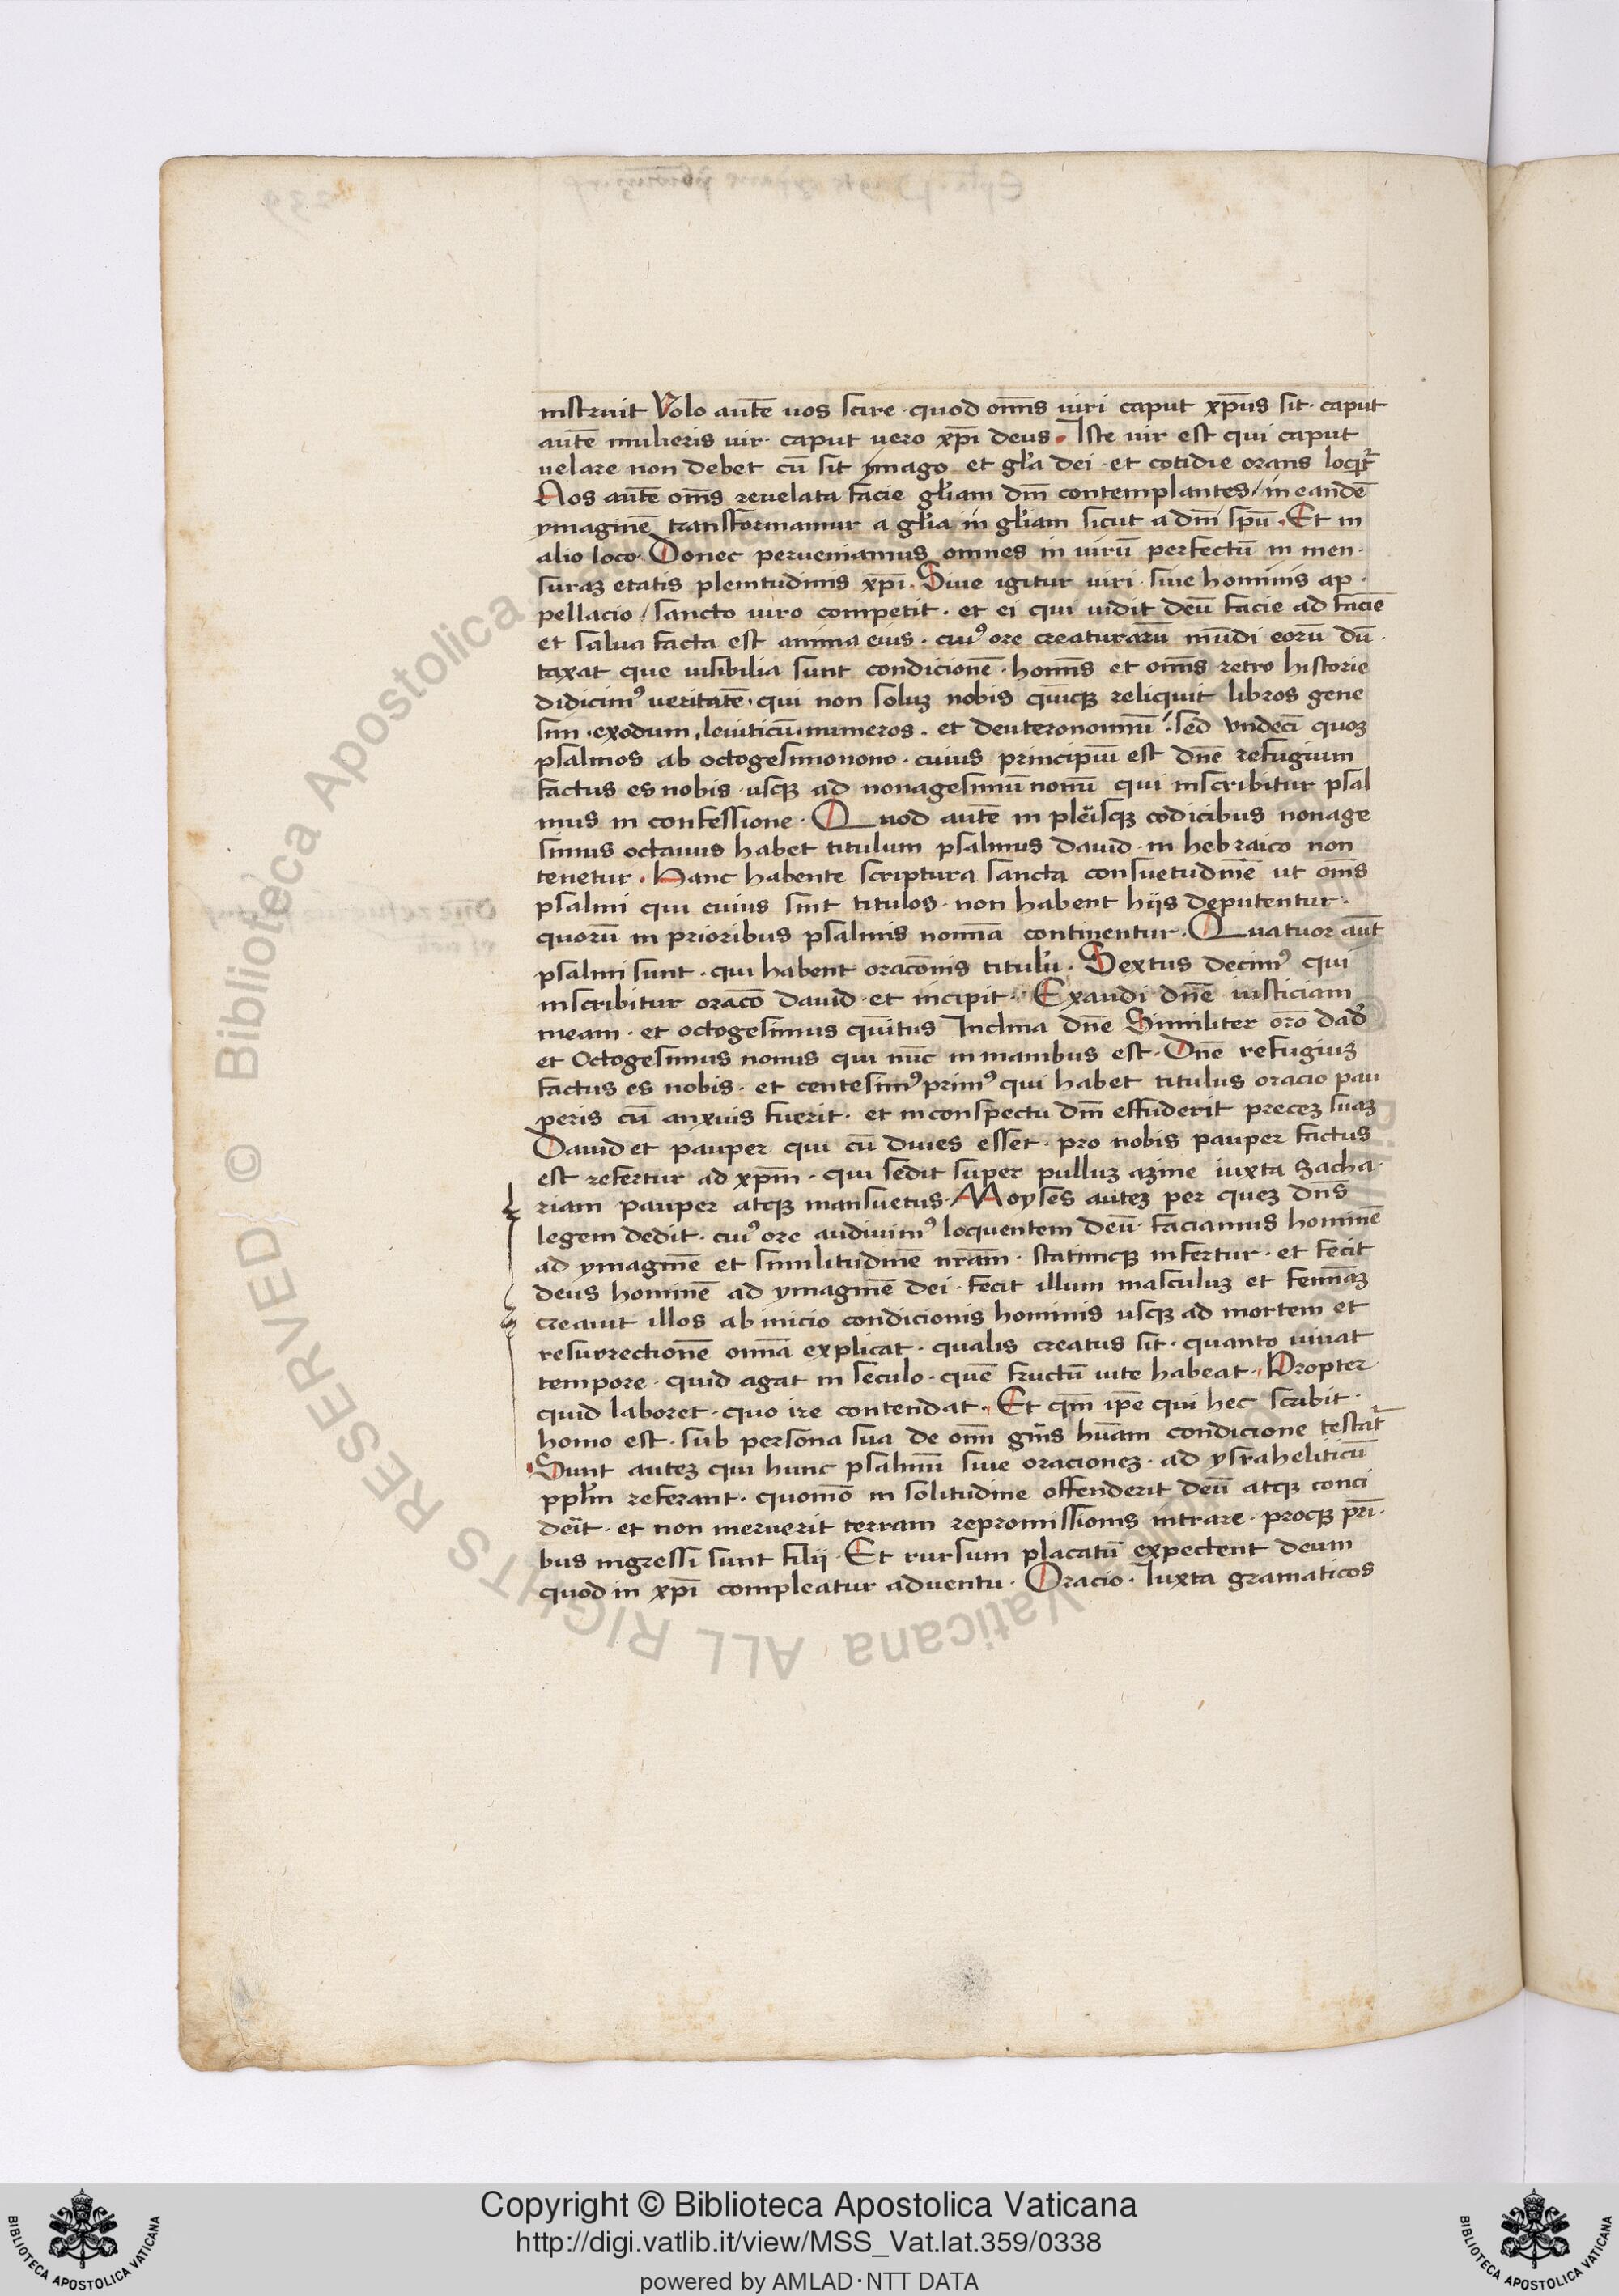 instruit Volo autē uos scire · quod om̄s uiri caput xp̄us sit · caput
autē mulieris uir · caput uero xp̄i deus · Iste uir est qui caput
uelare non debet cū sit ymago et gl̄a dei · et cotidie orans
Nos autē om̄s reuelata facie gl̄iam dn̄i contemplantes / in eandē
ymaginē transformamur a gl̄ia in gl̄iam sicut a dn̄i sp̄u · Et in
alio loco · Donec perueniamus omnes in uirū perfectū in men ·
suraʒ etatis plenitudinis xp̄i · Siue igitur uiri · siue hominis ap ·
pellacio / sancto uiro competit · et ei qui uidit deū facie ad faciē
et salua facta est anima eius · cuiꝰ ore creaturarū mūdi eorū dū ·
taxat que uisibilia sunt condicionē · hom̄s et om̄s retro historie
didicimꝰ ueritatē · qui non soluʒ nobis qūiqꝫ reliquit libros gene
sim · exodum · leuiticū · numeros · et deuteronomiū · sed vndeci quoʒ
psalmos ab octogesimonono · cuius principiū est dn̄e refugium
factus es nobis · usqꝫ ad nonagesimū nonū qui inscribitur psal
mus in confessione · Quod autē in pleisqꝫ codicibus nonage
simus octauus habet titulum psalmus dauid · in hebraico non
tenetur · Hanc habente scriptura sancta consuetudinē ut om̄s
psalmi qui cuius sint titulos · non habent hijs deputentur ·
quorū in prioribus psalmis nomīa continentur · Quatuor aūt
psalmi sunt · qui habent orac̄onis titulū · Sextus decimꝰ qui
inscribitur orac̄o dauid · et incipit · Exaudi dn̄e iusticiam
meam · et octogesimus qūitus Inclina dn̄e Similiter or̄o dad̄
et Octogesimus nonus qui nūc in manibus est · Dn̄e refugiuʒ
factus es nobis · et centesimꝰ primꝰ qui habet titulus oracio pau
peris cū anxius fuerit · et in conspectu dn̄i effuderit preceʒ suaʒ
Dauid et pauper qui cū diues esset · pro nobis pauper factus
est refertur ad xp̄m · qui sedit super pulluʒ azine iuxta Zacha ·
riam pauper atqꝫ mansuetus · Moyses auteʒ per queʒ dn̄s
legem dedit · cuiꝰ ore audiuimꝰ loquentem deū · faciamus hominē
ad ymaginē et similitudinē nr̄am · statimqꝫ infertur · et fecit
deus hominē ad ymaginē dei · fecit illum masculuʒ et femīaʒ
creauit illos ab inicio condicionis hominis usqꝫ ad mortem et
resurrectionē omīa explicat · qualis creatus sit · quanto uiuat
tempore · quid agat in seculo · quē fructū uite habeat · Propter
quid laboret · quo ire contendat · Et qm̄ ip̄e qui hec scribit ·
homo est · sub persona sua de om̄i gn̄is hūam condicione testat᷑
Sunt auteʒ qui hunc psalmū siue oracioneʒ · ad ysraheliticū
pplm̄ referant · quomō in solitudine offenderit deū atqꝫ conci
deīt · et non meruerit terram repromissionis intrare · proqꝫ pr̄i ·
bus ingressi sunt filij · Et rursum placatū expectent deum
quod in xp̄i compleatur aduentu · Oracio · Iuxta gramaticos
© Biblioteca Apostolica Vaticana ALL RIGHTS RESERVED
BIBLIOTECA APOSTOLICA VATICANA
Copyright © Biblioteca Apostolica Vaticana
http://digi.vatlib.it/view/MSS_Vat.lat.359/0338
powered by AMLAD·NTT DATA
BIBLIOTECA APOSTOLICA VATICANA